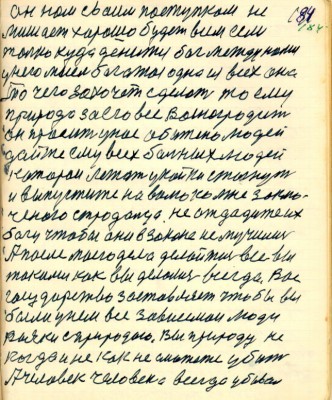 он нам своим поступком не
мешает хорошо будет всем если
только куда денется бог между нами
у него много богатой одна и всех она
то чего захочет сделать то ему
природа за его все вознаградит
он просит у нас обитено людей
дайте ему всех больных людей
которои лежат у койки стогнут
и выпустите на волю кожне заклю-
ченого страдальца, не отдадите их
богу чтобы они в законе не мучились
А после того дела делайте все вы
такими как вы делали всегда, Вас
государство заставляет чтобы вы
были у нем все зависимои люди
с природою, Вы природу не
когда и не как не сможете убить
А человек человека всегда убивал